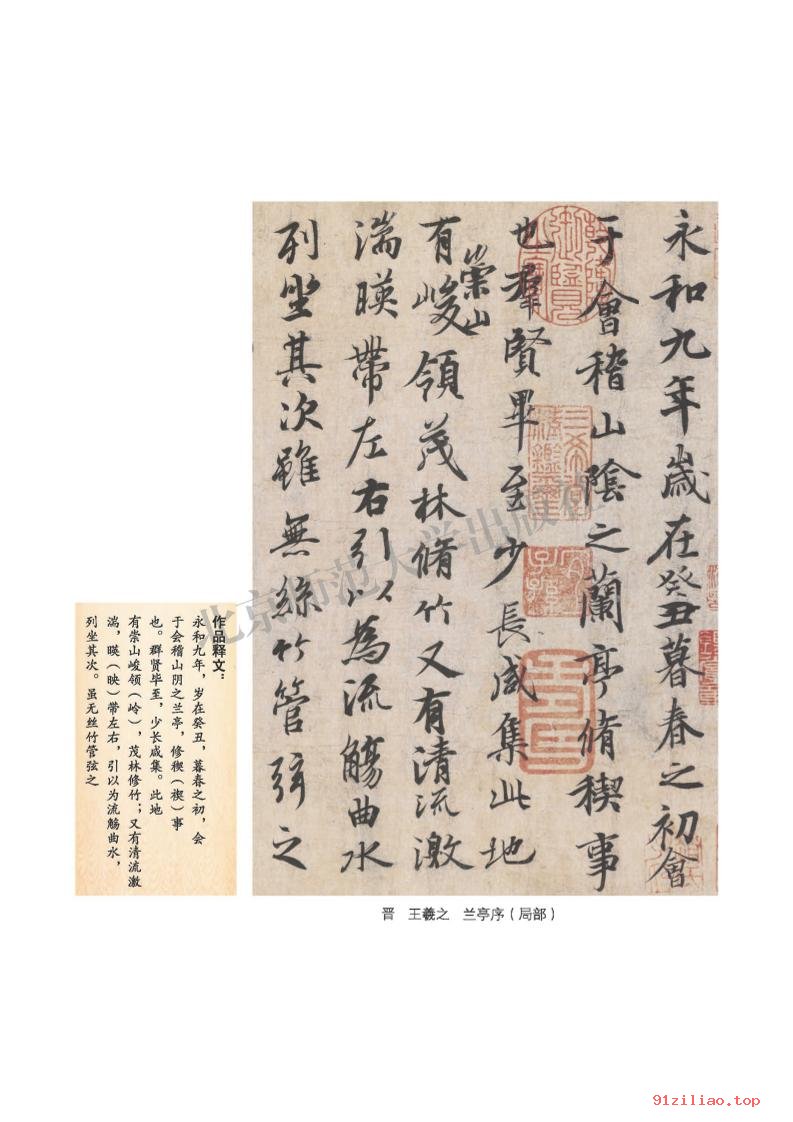 永和九年歲在癸丑暮春之初會
于會稽山陰之蘭亭脩稧事
也羣賢畢至少長咸集此地
有崇山峻領茂林脩竹又有清流激
湍暎帶左右引以為流觴曲水
列坐其次雖無絲竹管弦之
作品释文：
永和九年，岁在癸丑，暮春之初，会
于会稽山阴之兰亭，修稧（禊）事
也。群贤毕至，少长咸集。此地
有崇山峻领（岭），茂林修竹；又有清流激
湍，暎（映）带左右，引以为流觞曲水，
列坐其次。虽无丝竹管弦之
晋 王羲之 兰亭序（局部）
北京师范大学出版社
91ziliao.top